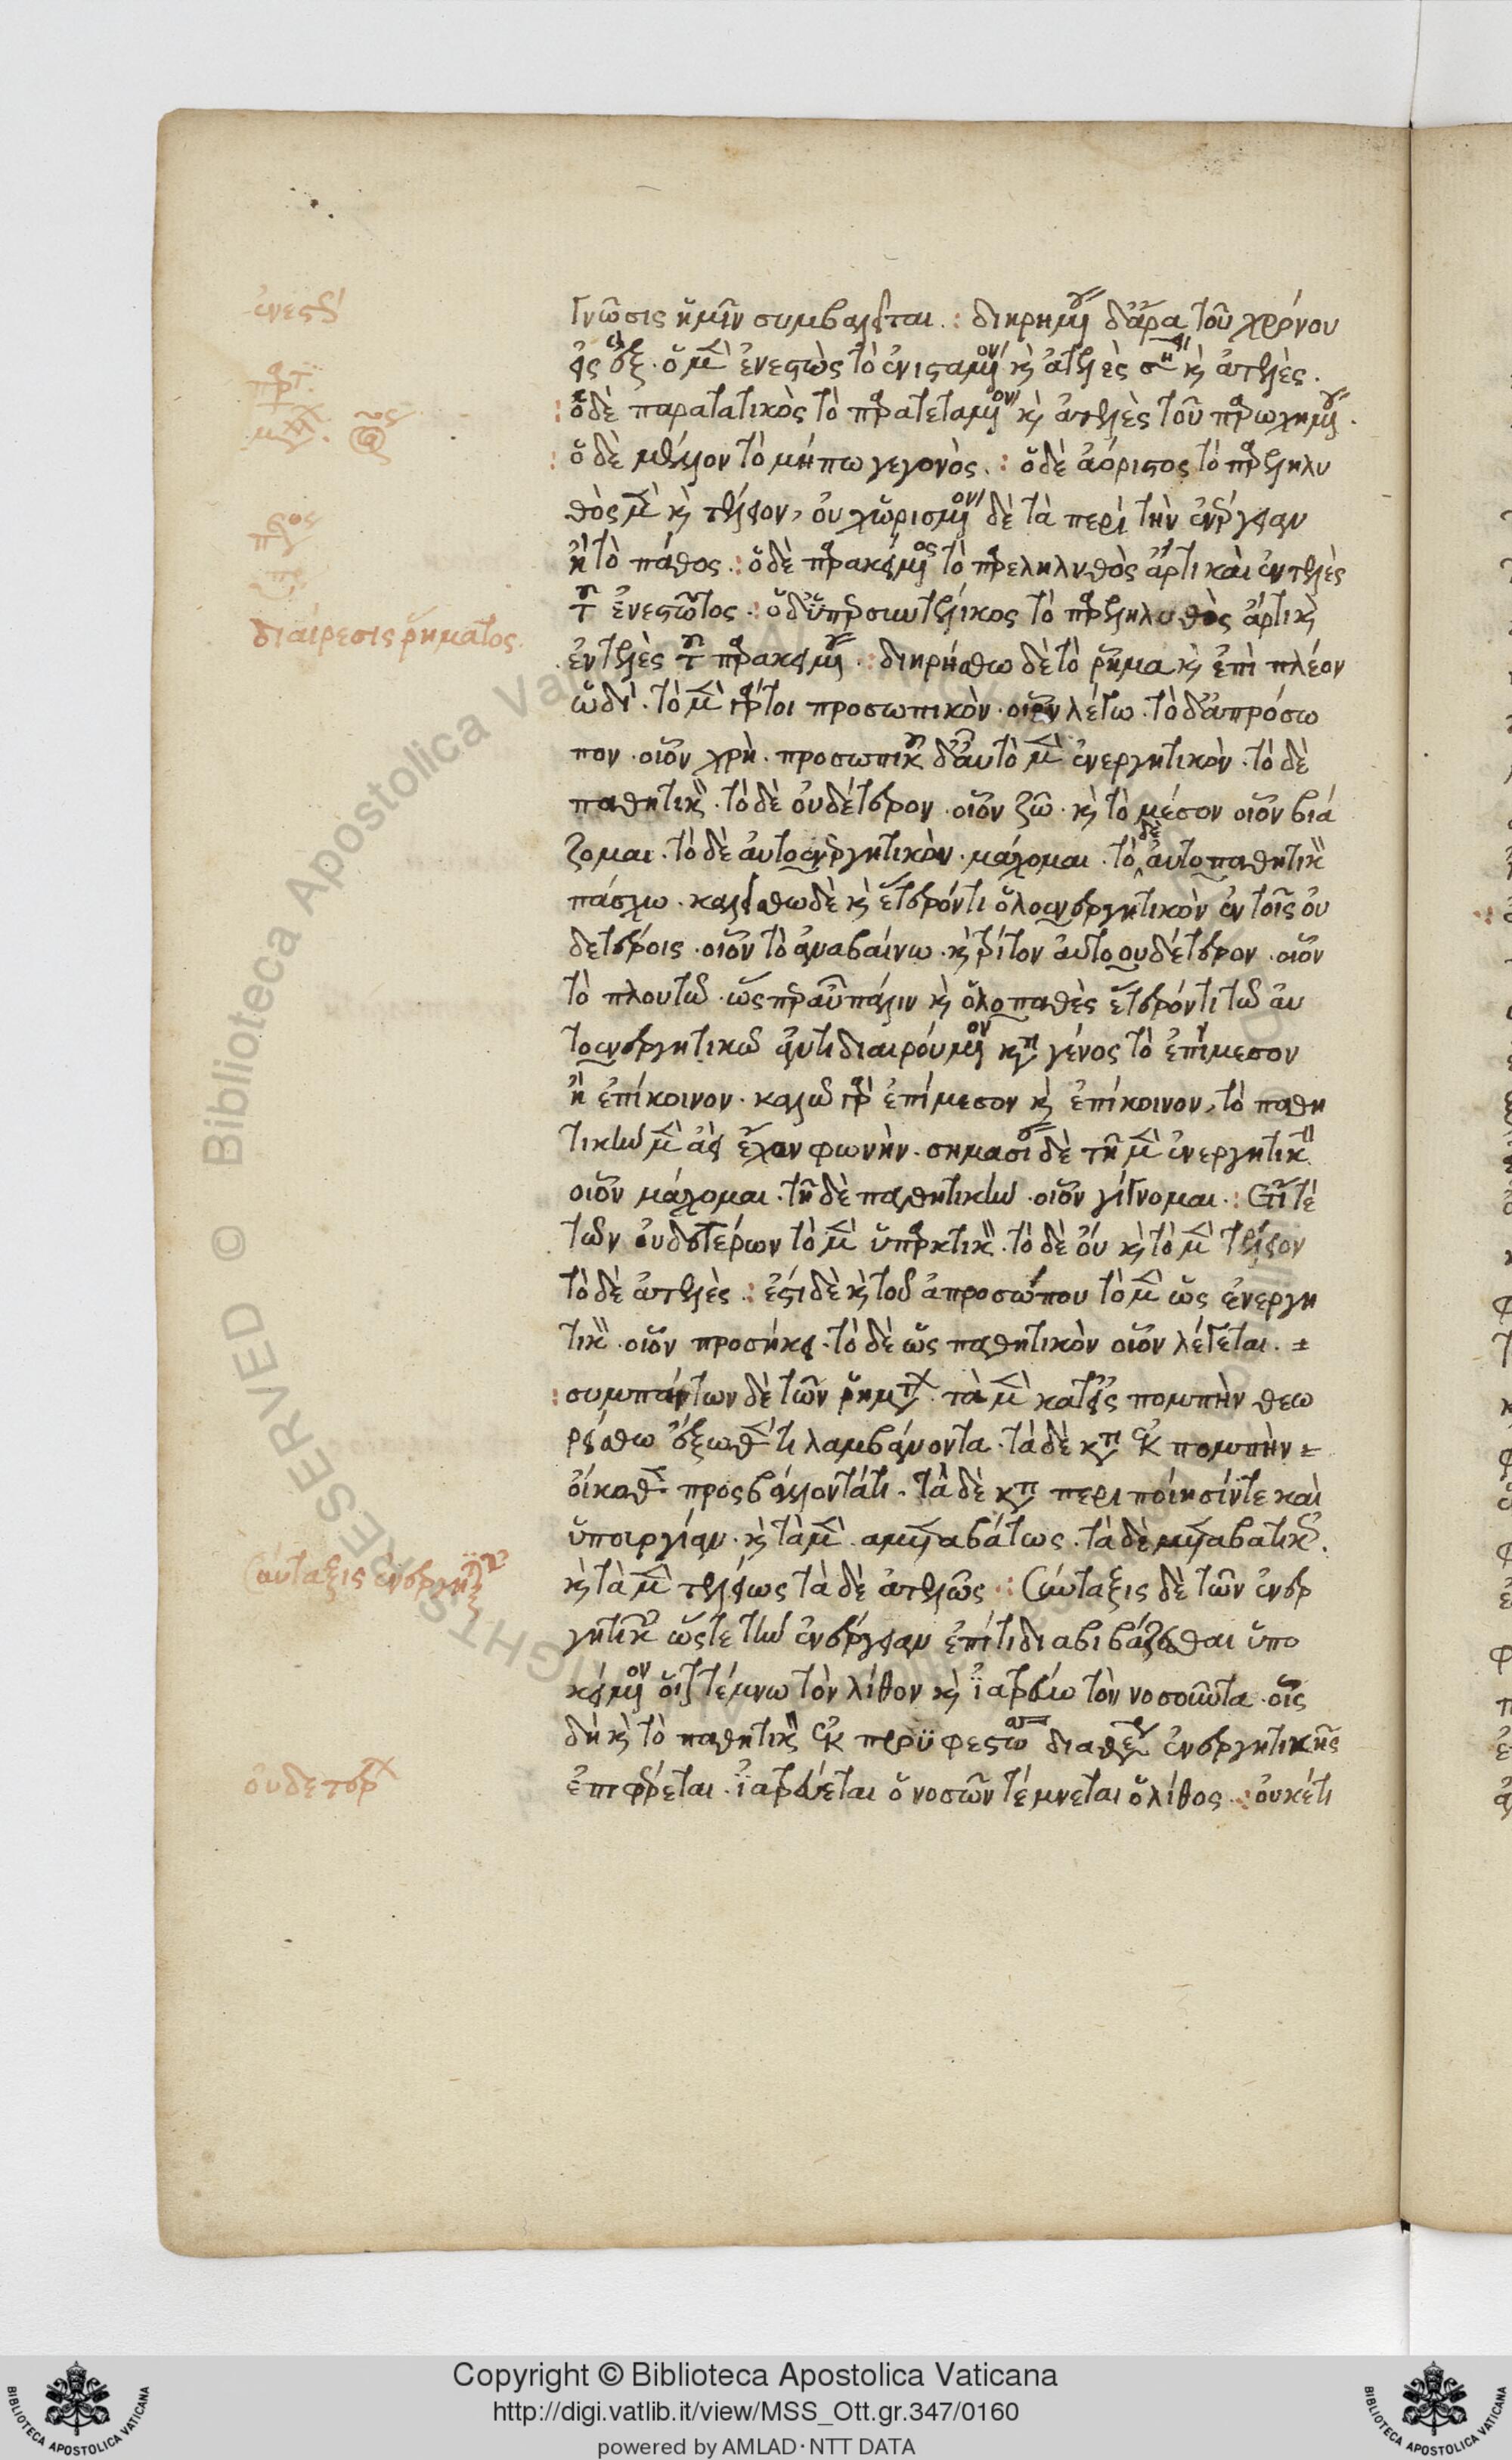 ἐνεστ
Γνῶσις ἡμῖν συμβαλεῖται .: διηρημένου δ' ἄρα τοῦ χρόνου
εἰς ἕξ · ὁ μὲν ἐνεστὼς τὸ ἐνιστάμενον καὶ ἀτελὲς καὶ ἀτελὲς .
: ὁ δὲ παρατατικὸς τὸ παρατεταμένον καὶ ἀτελὲς τοῦ παρωχημένου .
: ὁ δὲ μέλλον τὸ μήπω γεγονὸς .: ὁ δὲ ἀόριστος τὸ παρεληλυ
θὸς μὲν καὶ τέλειον, οὐ χωρισμένον δὲ τὰ περὶ τὴν ἐνέργειαν
ἢ τὸ πάθος .: ὁ δὲ παρακείμενος τὸ παρεληλυθὸς ἄρτι καὶ ἐντελὲς
διαίρεσις ῥήματος.
τοῦ ἐνεστῶτος .: ὁ δ' ὑπερσυντέλικος τὸ παρεληλυθὸς ἄρτι καὶ
ἐντελὲς τοῦ παρακειμένου .: διηρήσθω δὲ τὸ ῥῆμα καὶ ἐπὶ πλέον
ὡδί · τὸ μὲν προσωπικὸν · οἷον λέγω · τὸ δ' ἀπρόσω
πον · οἷον χρὴ · προσωπικοῦ δ' αὖ τὸ μὲν ἐνεργητικὸν · τὸ δὲ
παθητικὸν · τὸ δὲ οὐδέτερον · οἷον ζῶ · καὶ τὸ μέσον οἷον βιά
ζομαι · τὸ δὲ αὐτοενεργητικὸν · μάχομαι · τὸ δὲ αὐτοπαθητικὸν
πάσχω · καλείσθω δὲ καὶ ἕτερόν τι ὁλοενεργητικὸν ἐν τοῖς οὐ
δετέροις · οἷον τὸ ἀναβαίνω · καὶ τρίτον αὐτοουδέτερον · οἷον
τὸ πλουτῶ · ὡς παρ' αὖ πάλιν καὶ ὁλοπαθὲς ἕτερόν τι τῶ αὐ
τοενεργητικῶ ἀντιδιαιρούμενον κατὰ γένος τὸ ἐπίμεσον
ἢ ἐπίκοινον · καλῶ γὰρ ἐπίμεσον καὶ ἐπίκοινον, τὸ παθη
τικὴν μὲν ἀεὶ ἔχον φωνὴν · σημασίαν δὲ πῆ μὲν ἐνεργητικὴν
οἷον μάχομαι · πῆ δὲ παθητικὴν · οἷον γίγνομαι .: ἔτι τε
τῶν οὐδετέρων τὸ μὲν ὑπαρκτικὸν · τὸ δὲ οὐ καὶ τὸ μὲν τέλειον
τὸ δὲ ἀτελὲς .: ἔστι δὲ καὶ τοῦ ἀπροσώπου τὸ μὲν ὡς ἐνεργη
τικὸν · οἷον προσήκει · τὸ δὲ ὡς παθητικὸν οἷον λέγεται .
: συμπάντων δὲ τῶν ῥημάτων · τὰ μὲν κατ' εἰς πομπὴν θεω
ρείσθω ἔξωθέν τι λαμβάνοντα · τὰ δὲ κατ' ἐκ πομπὴν
οἴκοθεν προσβάλλοντά τι · τὰ δὲ κατὰ περιποίησίν τε καὶ
ὑπουργίαν · καὶ τὰ μὲν ἀμεταβάτως · τὰ δὲ μεταβατικῶς .
Σύνταξις ἐνεργητικῶν
καὶ τὰ μὲν τελείως τὰ δὲ ἀτελῶς .: Σύνταξις δὲ τῶν ἐνερ
γητικῶν ὥστε τὴν ἐνέργειαν ἐπί τι διαβιβάζεσθαι ὑπο
κείμενον οἷον τέμνω τὸν λίθον καὶ ἰατρεύω τὸν νοσοῦντα · οἷς
δὴ καὶ τὸ παθητικὸν ἐκ περιϋφεστώσης διαθέσεως ἐνεργητικῆς
οὐδετέρων
ἐπιφέρεται · ἰατρεύεται ὁ νοσῶν τέμνεται ὁ λίθος .: οὐκέτι
Copyright © Biblioteca Apostolica Vaticana
http://digi.vatlib.it/view/MSS_Ott.gr.347/0160
powered by AMLAD · NTT DATA